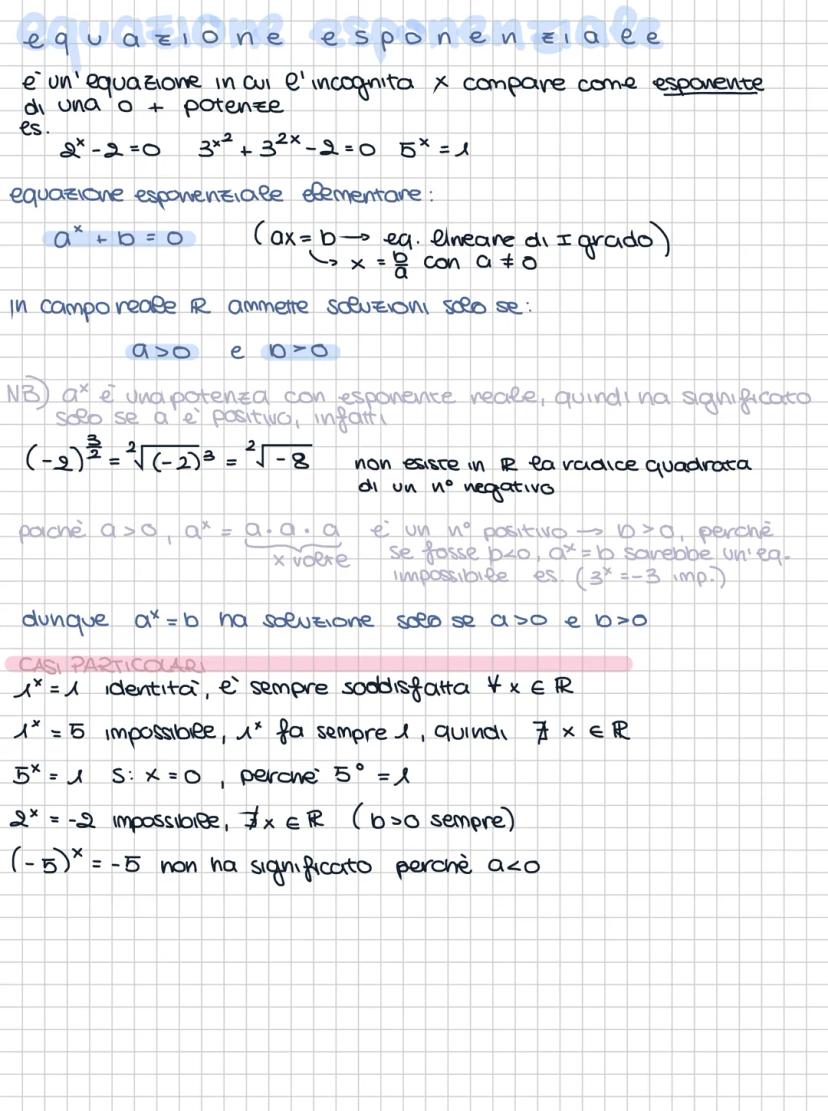 equazione esponenziale
è un'equazione in cui l'incognita x compare come esponente
di una o + potenze
es.
2ˣ - 2 = 0 3ˣ² + 3²ˣ - 2 = 0 5ˣ = 1
equazione esponenziale elementare:
aˣ + b = 0 (ax = b → eq. lineare di I grado)
↳ x = b/a con a ≠ 0
in campo reale ℝ ammette soluzioni solo se:
a > 0 e b > 0
NB) aˣ è una potenza con esponente reale, quindi ha significato
solo se a è positivo, infatti
(-2)^(3/2) = ²√(-2)³ = ²√-8 non esiste in ℝ la radice quadrata
di un n° negativo
poiché a > 0, aˣ = a · a · a è un n° positivo → b > 0, perché
x volte se fosse b<0, aˣ = b sarebbe un'eq.
impossibile es. (3ˣ = -3 imp.)
dunque aˣ = b ha soluzione solo se a > 0 e b > 0
CASI PARTICOLARI
1ˣ = 1 identità, è sempre soddisfatta ∀ x ∈ ℝ
1ˣ = 5 impossibile, 1ˣ fa sempre 1, quindi ∄ x ∈ ℝ
5ˣ = 1 S: x = 0, perché 5° = 1
2ˣ = -2 impossibile, ∄ x ∈ ℝ (b>0 sempre)
(-5)ˣ = -5 non ha significato perchè a<0